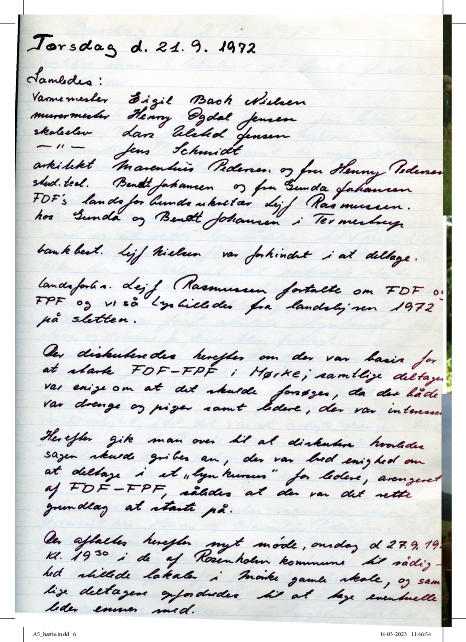 Torsdag d. 21.9. 1972
Samledes:
Varmemester Eigil Bach Nielsen
murermester Henry Ogdal Jensen
skoleelev Lars Ulsted Jensen
— " — Jens Schmidt
arkitekt Marenhus Pedersen og fru Henny Pedersen
stud. teol. Bendt Johansen og fru Gunda Johansen
FDF's landsforbundssekretær Lejf Rasmussen.
hos Gunda og Bendt Johansen i Termestrup
bankbest. Lejf Nielsen var forhindret i at deltage.
landsforb.s. Lejf Rasmussen fortalte om FDF o
FPF og vi så lysbilleder fra landslejren 1972
på sletten.
Der diskuteredes herefter om der var basis for
at starte FDF-FPF i Mørke; samtlige deltager
var enige om at det skulde forsøges, da der både
var drenge og piger samt ledere, der var interesse
Herefter gik man over til at diskutere hvorledes
sagen skulde gribes an, der var bred enighed om
at deltage i et „lynkursus" for ledere, arrangeret
af FDF-FPF, således at der var det rette
grundlag at starte på.
Der aftaltes herefter nyt møde, onsdag d 27.9.19
kl. 19³⁰ i de af Rosenholm kommune til rådig-
hed stillede lokaler i Mørke gamle skole, og sam
lige deltagere opfordredes til at tage eventuelle
ledere emner med.
A5_hæfte.indd 6
14-03-2023 11:46:54